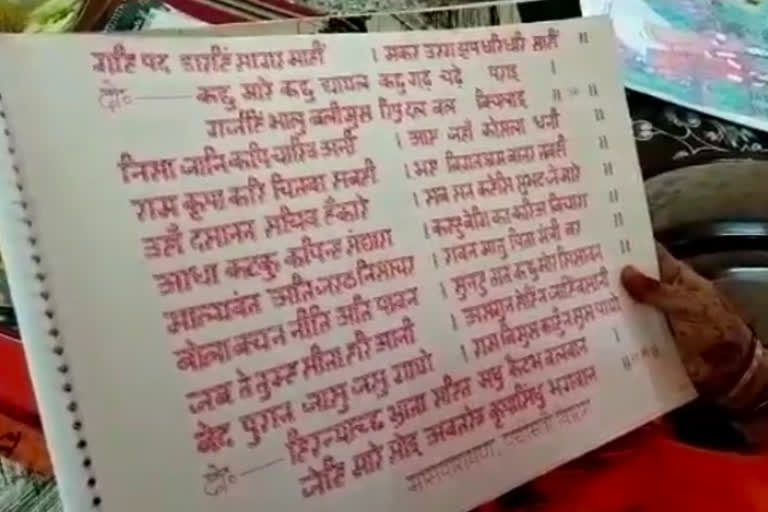 गहि पद डारहिं सागर माहीं । मकर उरग झष धरि धरि खाहीं ॥
दो० — कछु मारे कछु घायल कछु गढ़ चढ़े पराइ ।
गर्जहिं भालु बलीमुख रिपु दल बल बिचलाइ ॥
निसा जानि कपि चारिउ अनी । आए जहाँ कोसला धनी ॥
राम कृपा करि चितवा सबही । भए बिगत श्रम बानर तबही ॥
उहाँ दसानन सचिव हँकारे । सब सन कहेसि सुभट जे मारे ॥
आधा कटकु कपिन्ह संघारा । कहहु बेगि का करिअ बिचारा ॥
माल्यवंत अति जरठ निसाचर । रावन मातु पिता मंत्री बर ॥
बोला बचन नीति अति पावन । सुनहु तात कछु मोर सिखावन ॥
जब ते तुम्ह सीता हरि आनी । असगुन होहिं न जाहिं बखानी ॥
बेद पुरान जासु जसु गायो । राम बिमुख काहुँ न सुख पायो ॥
दो० — हिरन्याच्छ भ्राता सहित मधु कैटभ बलवान ।
जेहिं मारे सोइ अवतरेउ कृपासिंधु भगवान ॥
मासपारायण, पचीसवाँ विश्राम